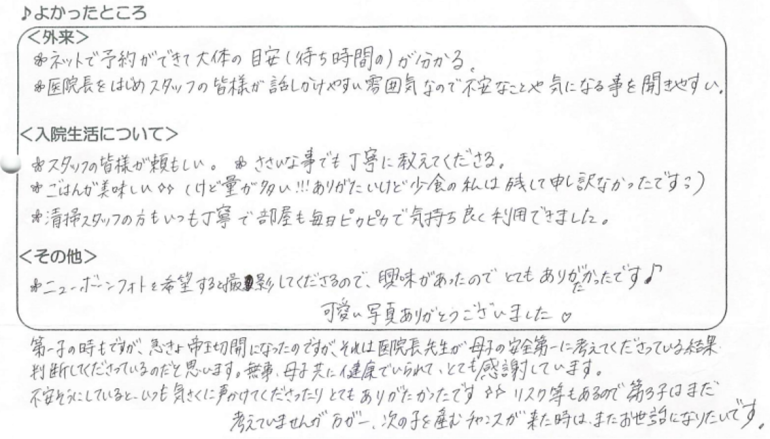 ♪よかったところ
<外来>
*ネットで予約ができて大体の目安(待ち時間の)が分かる。
*医院長をはじめスタッフの皆様が話しかけやすい雰囲気なので不安なことや気になる事を聞きやすい。
<入院生活について>
*スタッフの皆様が頼もしい。 *ささいな事でも丁寧に教えてくださる。
*ごはんが美味しい☆☆(けど量が多い!!!ありがたいけど少食の私は残して申し訳なかったです;)
*清掃スタッフの方もいつも丁寧で部屋も毎日ピカピカで気持ち良く利用できました。
<その他>
*ニューボーンフォトを希望すると撮影してくださるので、興味があったのでとてもありがたかったです♪
可愛い写真ありがとうございました♡
第一子の時もですが、急きょ帝王切開になったのですが、それは医院長先生が母子の安全第一に考えてくださっている結果
判断してくださっているのだと思います。無事、母子共に健康でいられて、とても感謝しています。
不安そうにしていると、いつも気さくに声かけてくださったりとてもありがたかったです☆☆ リスク等もあるので第3子はまだ
考えていませんが万が一、次の子を産むチャンスが来た時は、またお世話になりたいです。